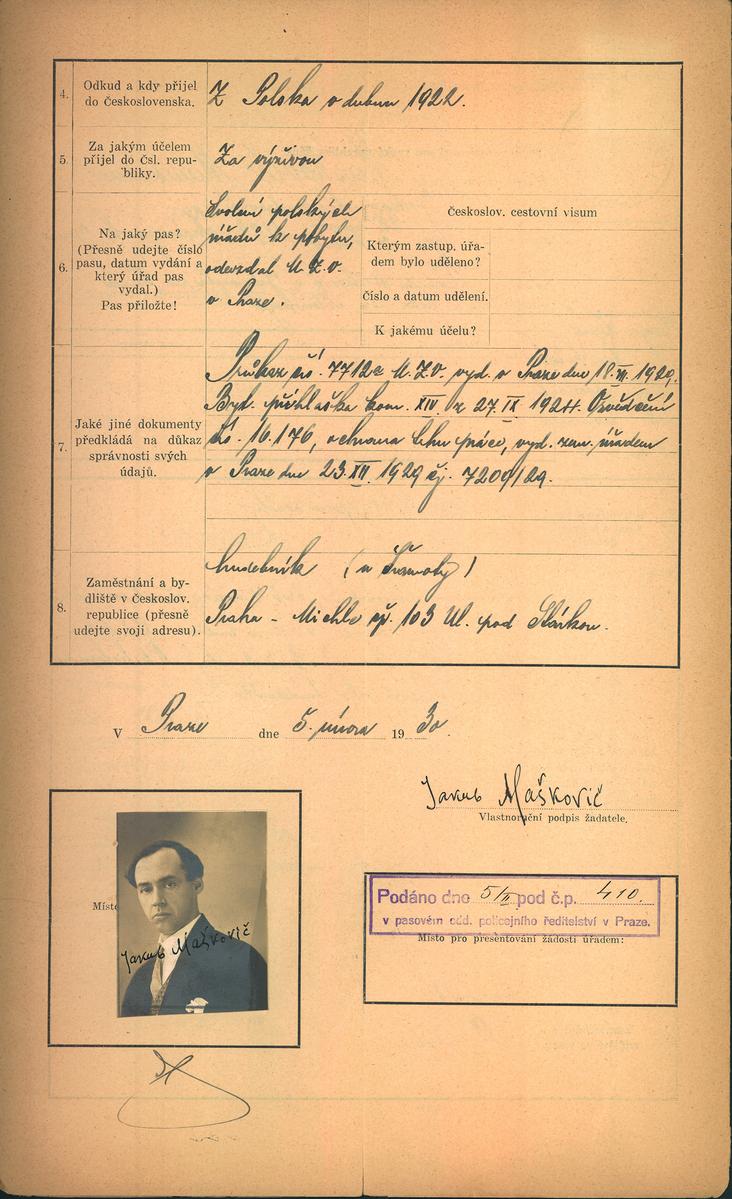 4. Odkud a kdy přijel
do Československa.
Z Polska v dubnu 1922.
5. Za jakým účelem
přijel do čsl. repu-
bliky.
Za výživou
6. Na jaký pas?
(Přesně udejte číslo
pasu, datum vydání a
který úřad pas
vydal.)
Pas přiložte!
polských
úřadů k pobytu,
odevzdal M.Z.V.
v Praze.
Českoslov. cestovní visum
Kterým zastup. úřa-
dem bylo uděleno?
Číslo a datum udělení.
K jakému účelu?
7. Jaké jiné dokumenty
předkládá na důkaz
správnosti svých
údajů.
Průkaz čís. 7712 M.Z.V. vyd. v Praze dne 18. 1929.
Byt. přihláška kom. XIV. z 27.IX 1924. Osvědčení
čís. 16.176, ochrana trhu práce, vyd. zem. úřadem
v Praze dne 23.XII. 1929 čj. 7209/29.
8. Zaměstnání a by-
dliště v Českoslov.
republice (přesně
udejte svoji adresu).
hudebník (u )
Praha - Michle čp. 103 Ul. pod
V Praze dne 5. února 1930.
Jakub Maškovič
Vlastnoruční podpis žadatele.
Míst
Jakub Maškovič
Podáno dne 5/II pod č.p. 410.
v pasovém odd. policejního ředitelství v Praze.
Místo pro presentování žádosti úřadem: